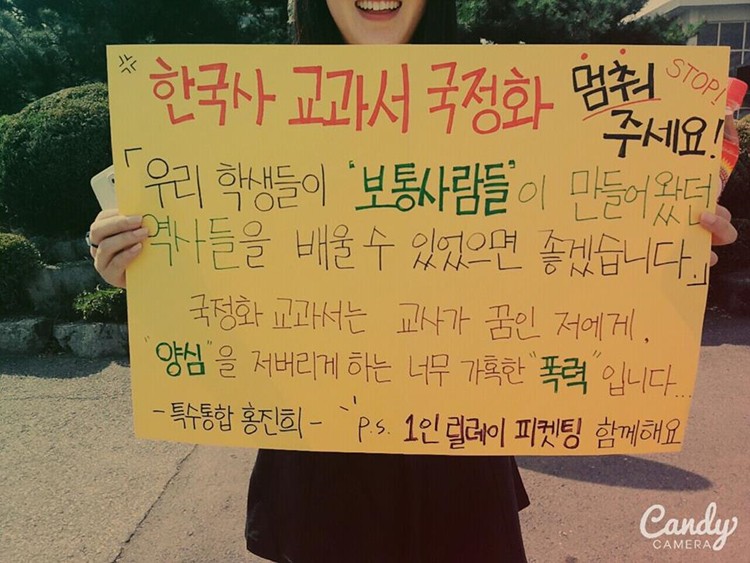 한국사 교과서 국정화 멈춰 STOP!
주세요!
「우리 학생들이 "보통사람들"이 만들어왔던
역사들을 배울 수 있었으면 좋겠습니다.」
국정화 교과서는 교사가 꿈인 저에게,
"양심"을 저버리게 하는 너무 가혹한 "폭력"입니다...
- 특수통합 홍진희 - P.S. 1인 릴레이 피켓팅 함께해요
Candy
CAMERA